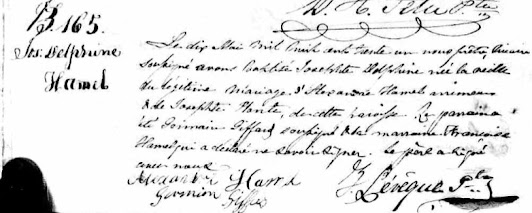 B. 165.
Jos. Delphine
Hamel
Le dix Mai mil huit cent trente un nous prêtre, Vicaire
soussigné avons baptisé Josephte Delphine née la veille
du légitime mariage d'Alexandre Hamel
& de Josephte Plante, de cette paroisse. Le parrain a
été Germain Giffard soussigné & la marraine Françoise
Hamel qui a déclaré ne savoir signer. Le père a signé
avec nous
Alexandre Hamel
Germain Giffard
Lévêque Ptre